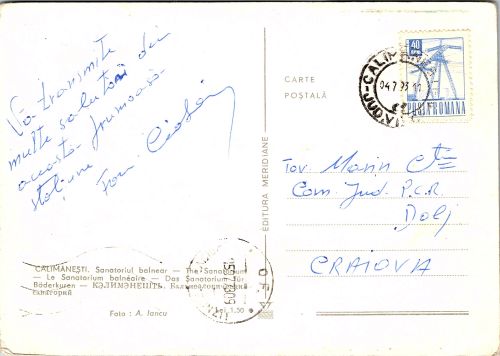 Vă transmite
multe salutări din
această frumoasă
stațiune
Fam.
CĂLIMĂNEȘTI. Sanatoriul balnear — The Sanatorium
— Le Sanatorium balnéaire — Das Sanatorium für
Bäderkuren — КЭЛИМЭНЕШТЬ. Бальнеологический
санаторий
Foto : A. Iancu
Lei 1,50
EDITURA MERIDIANE
CARTE
POȘTALĂ
40
BANI
POSTA ROMANA
04.7.73
Tov Marin
Com Jud. P.C.R.
Dolj
CRAIOVA